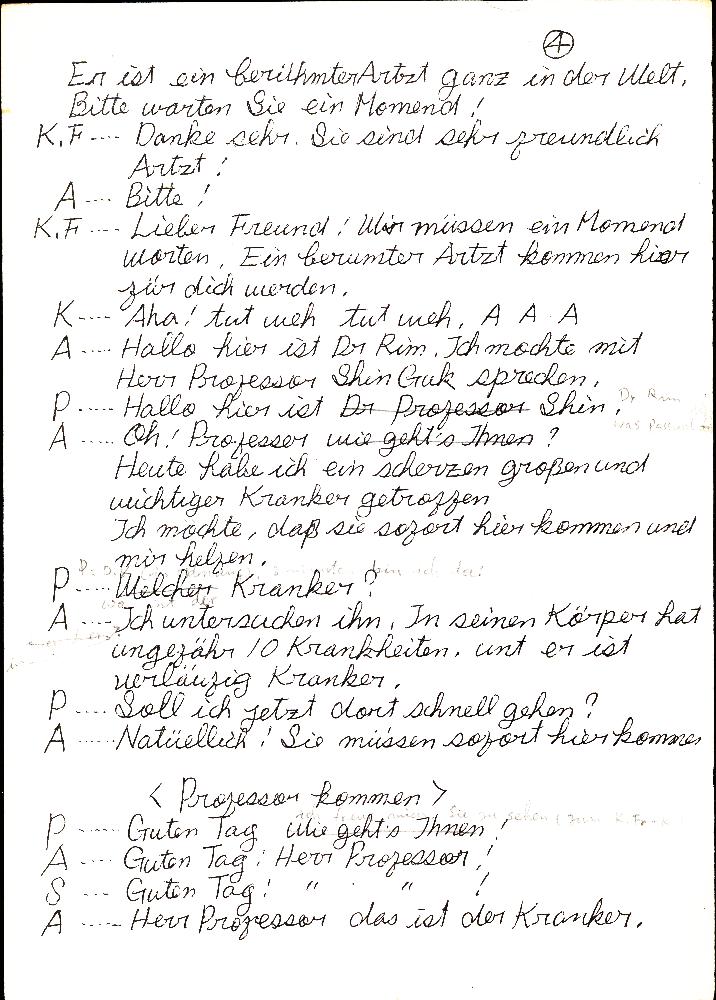 4
Er ist ein berühmter Artzt ganz in der Welt.
Bitte warten Sie ein Momend!
K.F ---- Danke sehr. Sie sind sehr freundlich
Artzt!
A ---- Bitte!
K.F ---- Lieber Freund! Wir müssen ein Momend
warten. Ein berumter Artzt kommen hier
für dich werden.
K ---- Aha! tut weh tut weh. A A A
A ---- Hallo hier ist Dr Rim. Ich mochte mit
Herr Professor Shin Guk sprechen.
P ---- Hallo hier ist Dr Professor Shin. Dr Rim
A ---- Oh! Professor wie geht's Ihnen?
Heute habe ich ein scherzen großen und
wichtiger Kranker getroffen
Ich mochte, daß sie sofort hier kommen und
mir helfen.
P ---- Welcher Kranker?
A ---- Ich untersuchen ihn. In seinen Körper hat
ungefähr 10 Krankheiten. unt er ist
verläufig Kranker.
P ---- Soll ich jetzt dort schnell gehen?
A ---- Natüellich! Sie müssen sofort hier kommen
< Professor kommen >
P ---- Guten Tag wie geht's Ihnen!
A ---- Guten Tag! Herr Professor!
S ---- Guten Tag! " " !
A ---- Herr Professor das ist der Kranker.